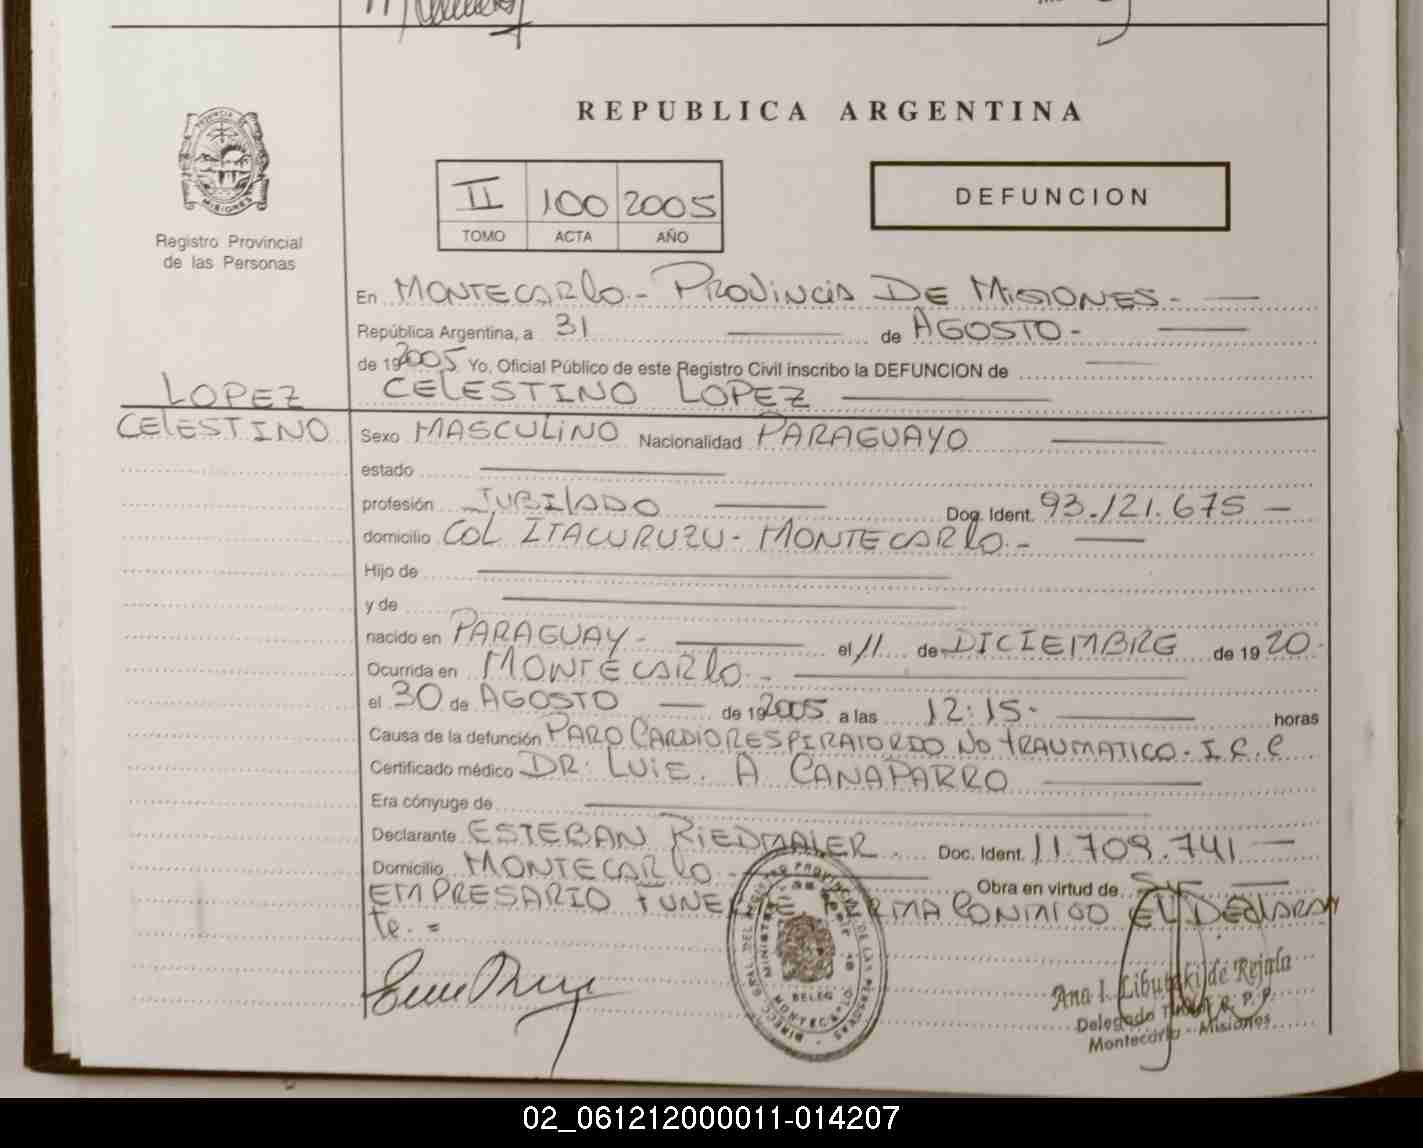 REPUBLICA ARGENTINA
PROVINCIA DE
MISIONES
Registro Provincial
de las Personas
II 100 2005
TOMO ACTA AÑO
DEFUNCION
En MONTECARLO - PROVINCIA DE MISIONES -
República Argentina, a 31 de AGOSTO -
de 192005 Yo, Oficial Público de este Registro Civil inscribo la DEFUNCION de
CELESTINO LOPEZ
LOPEZ
CELESTINO
Sexo MASCULINO Nacionalidad PARAGUAYO
estado
profesión JUBILADO Doc. Ident. 93.121.675 -
domicilio COL ITACURUZU - MONTECARLO -
Hijo de
y de
nacido en PARAGUAY - el 11 de DICIEMBRE de 1920.
Ocurrida en MONTECARLO -
el 30 de AGOSTO de 192005 a las 12:15 - horas
Causa de la defunción PARO CARDIORESPIRATORIO NO TRAUMATICO - I.C.C
Certificado médico DR. LUIS. A CANAPARRO
Era cónyuge de
Declarante ESTEBAN RIEDMAIER. Doc. Ident. 11.709.741 -
Domicilio MONTECARLO - Obra en virtud de SER
EMPRESARIO FUNEBRE FIRMA CONMIGO EL DECLARAN
te. =
MONTECARLO
Ana I. de Rejala
Delegado Titular R. P. P.
Montecarlo - Misiones
02_061212000011-014207